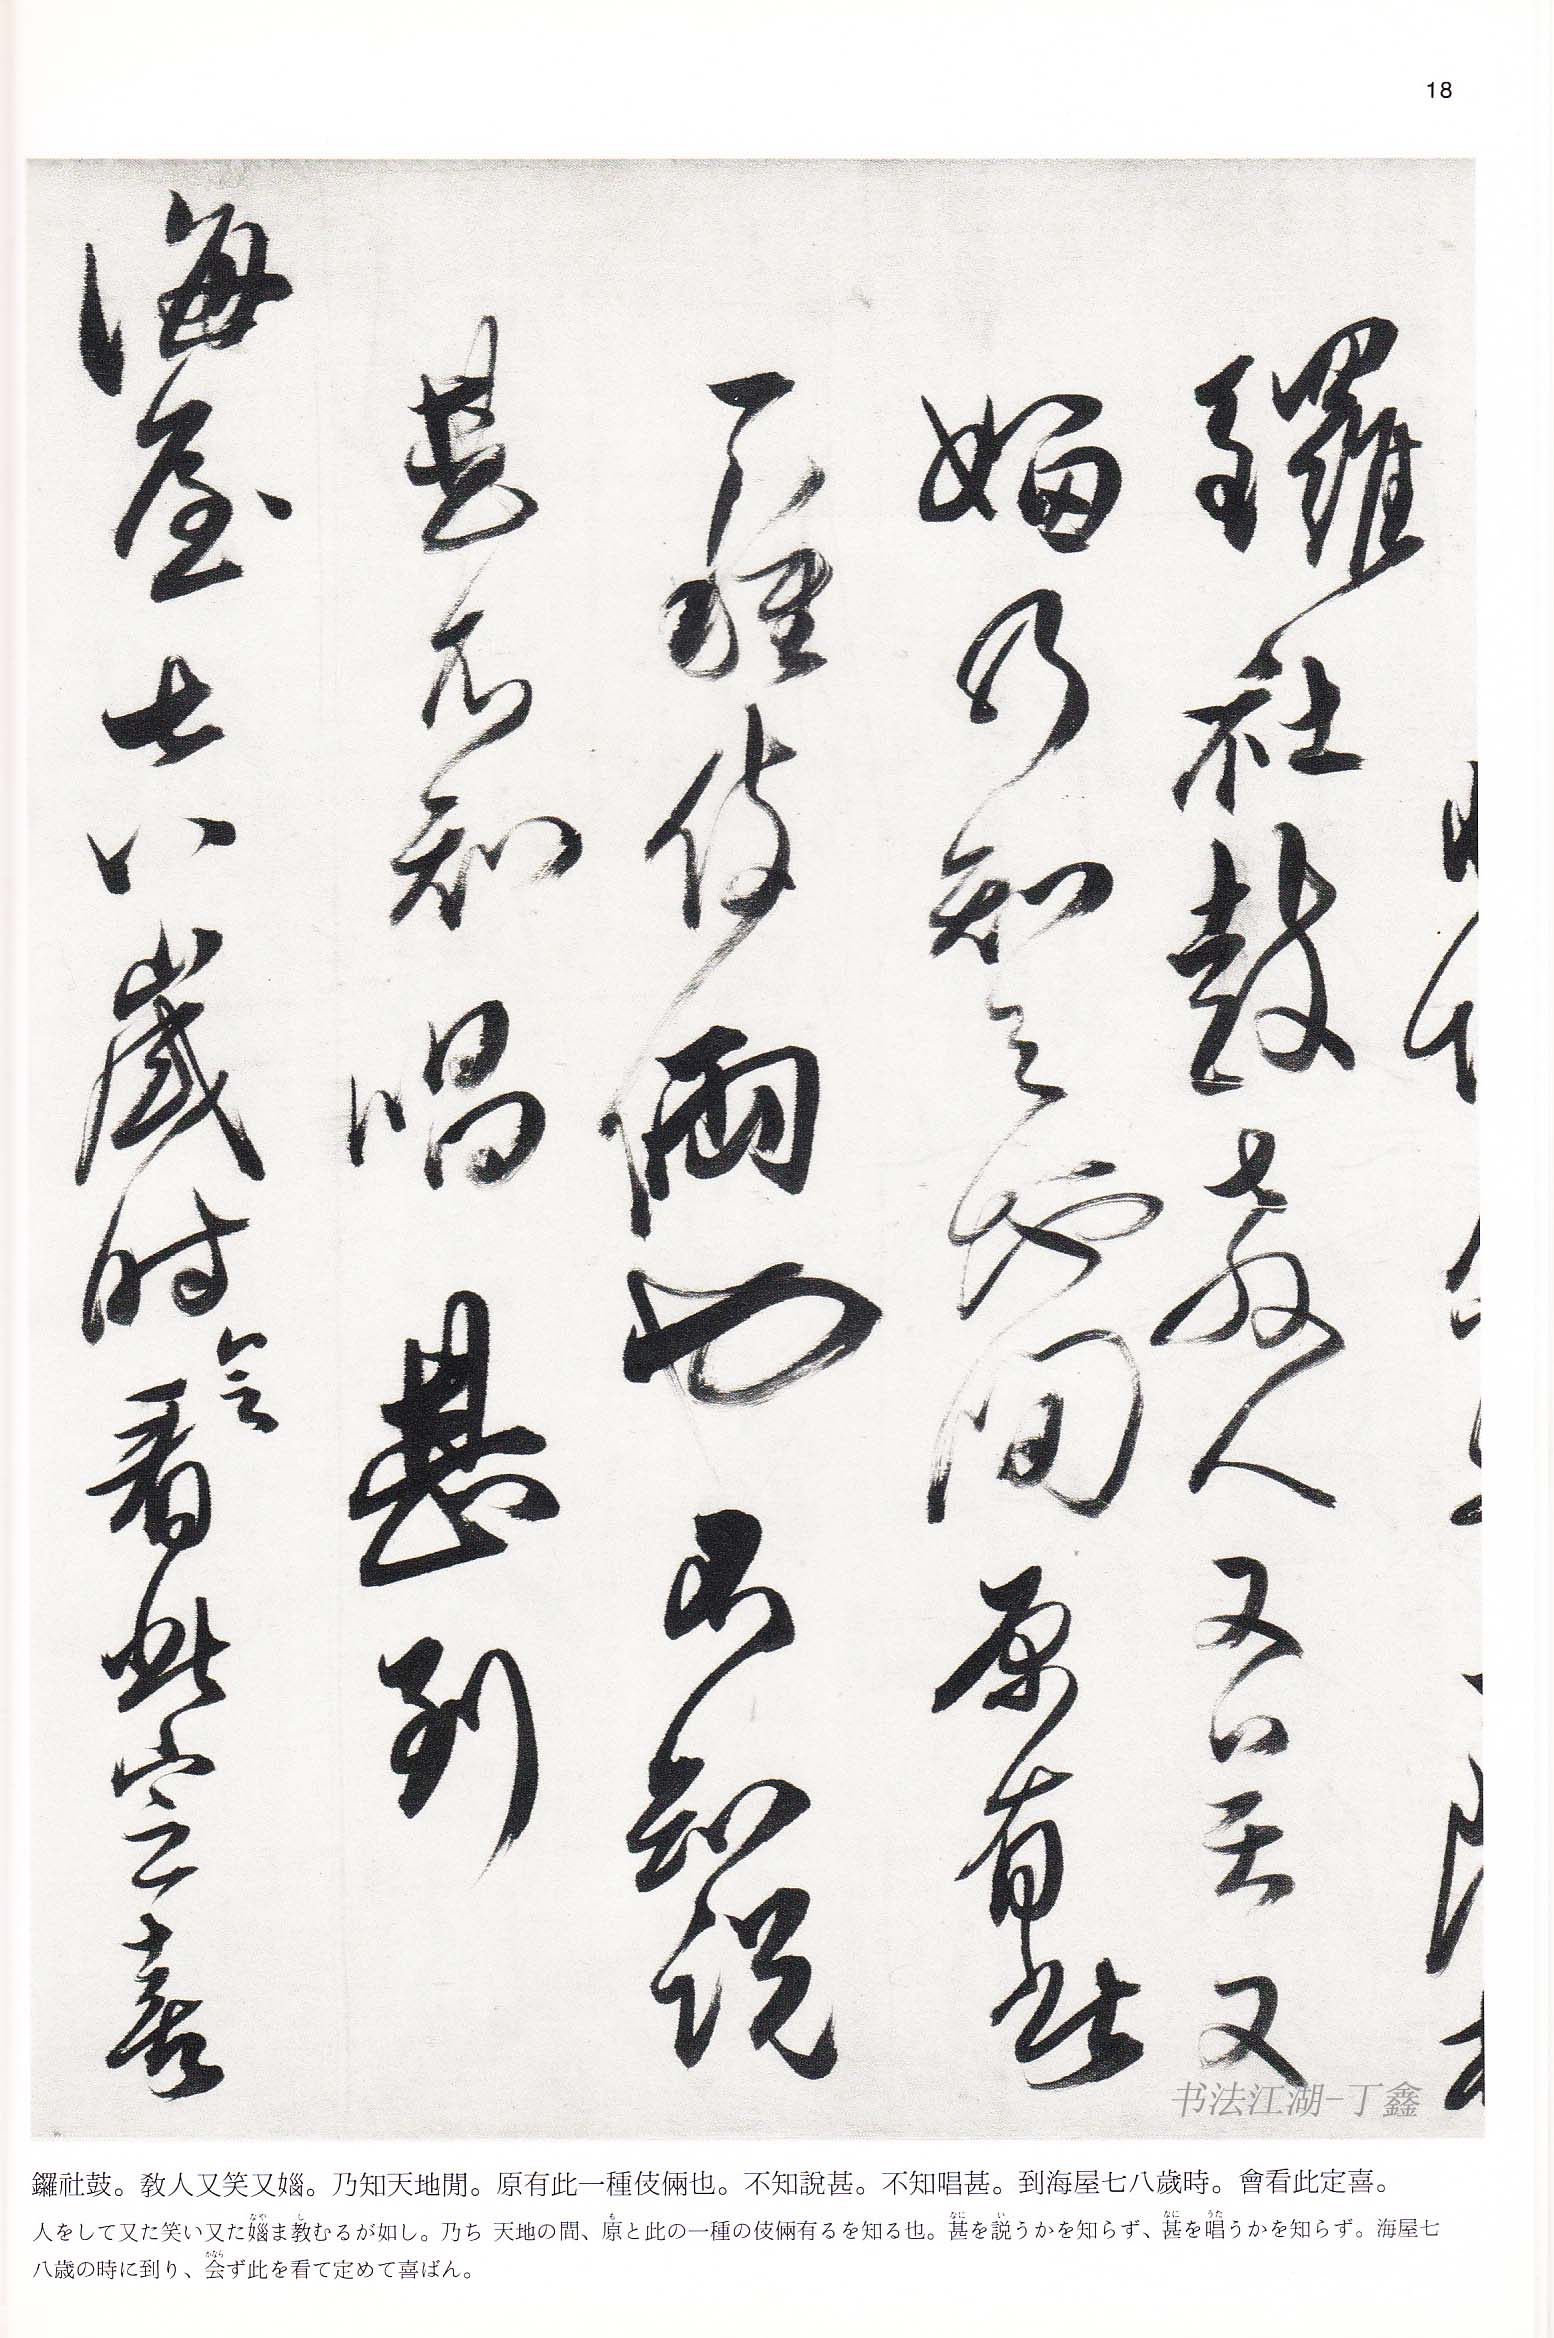 18
鑼社鼓教人又笑又
媼乃知天地間原有此
一種伎倆也不知說
甚不知唱甚到
海屋七八歲時會看此定喜
书法江湖-丁鑫
鑼社鼓。敎人又笑又媼。乃知天地閒。原有此一種伎倆也。不知說甚。不知唱甚。到海屋七八歲時。會看此定喜。
人をして又た笑い又た媼ま教むるが如し。乃ち 天地の間、原と此の一種の伎倆有るを知る也。甚を説うかを知らず、甚を唱うかを知らず。海屋七
八歳の時に到り、会ず此を看て定めて喜ばん。